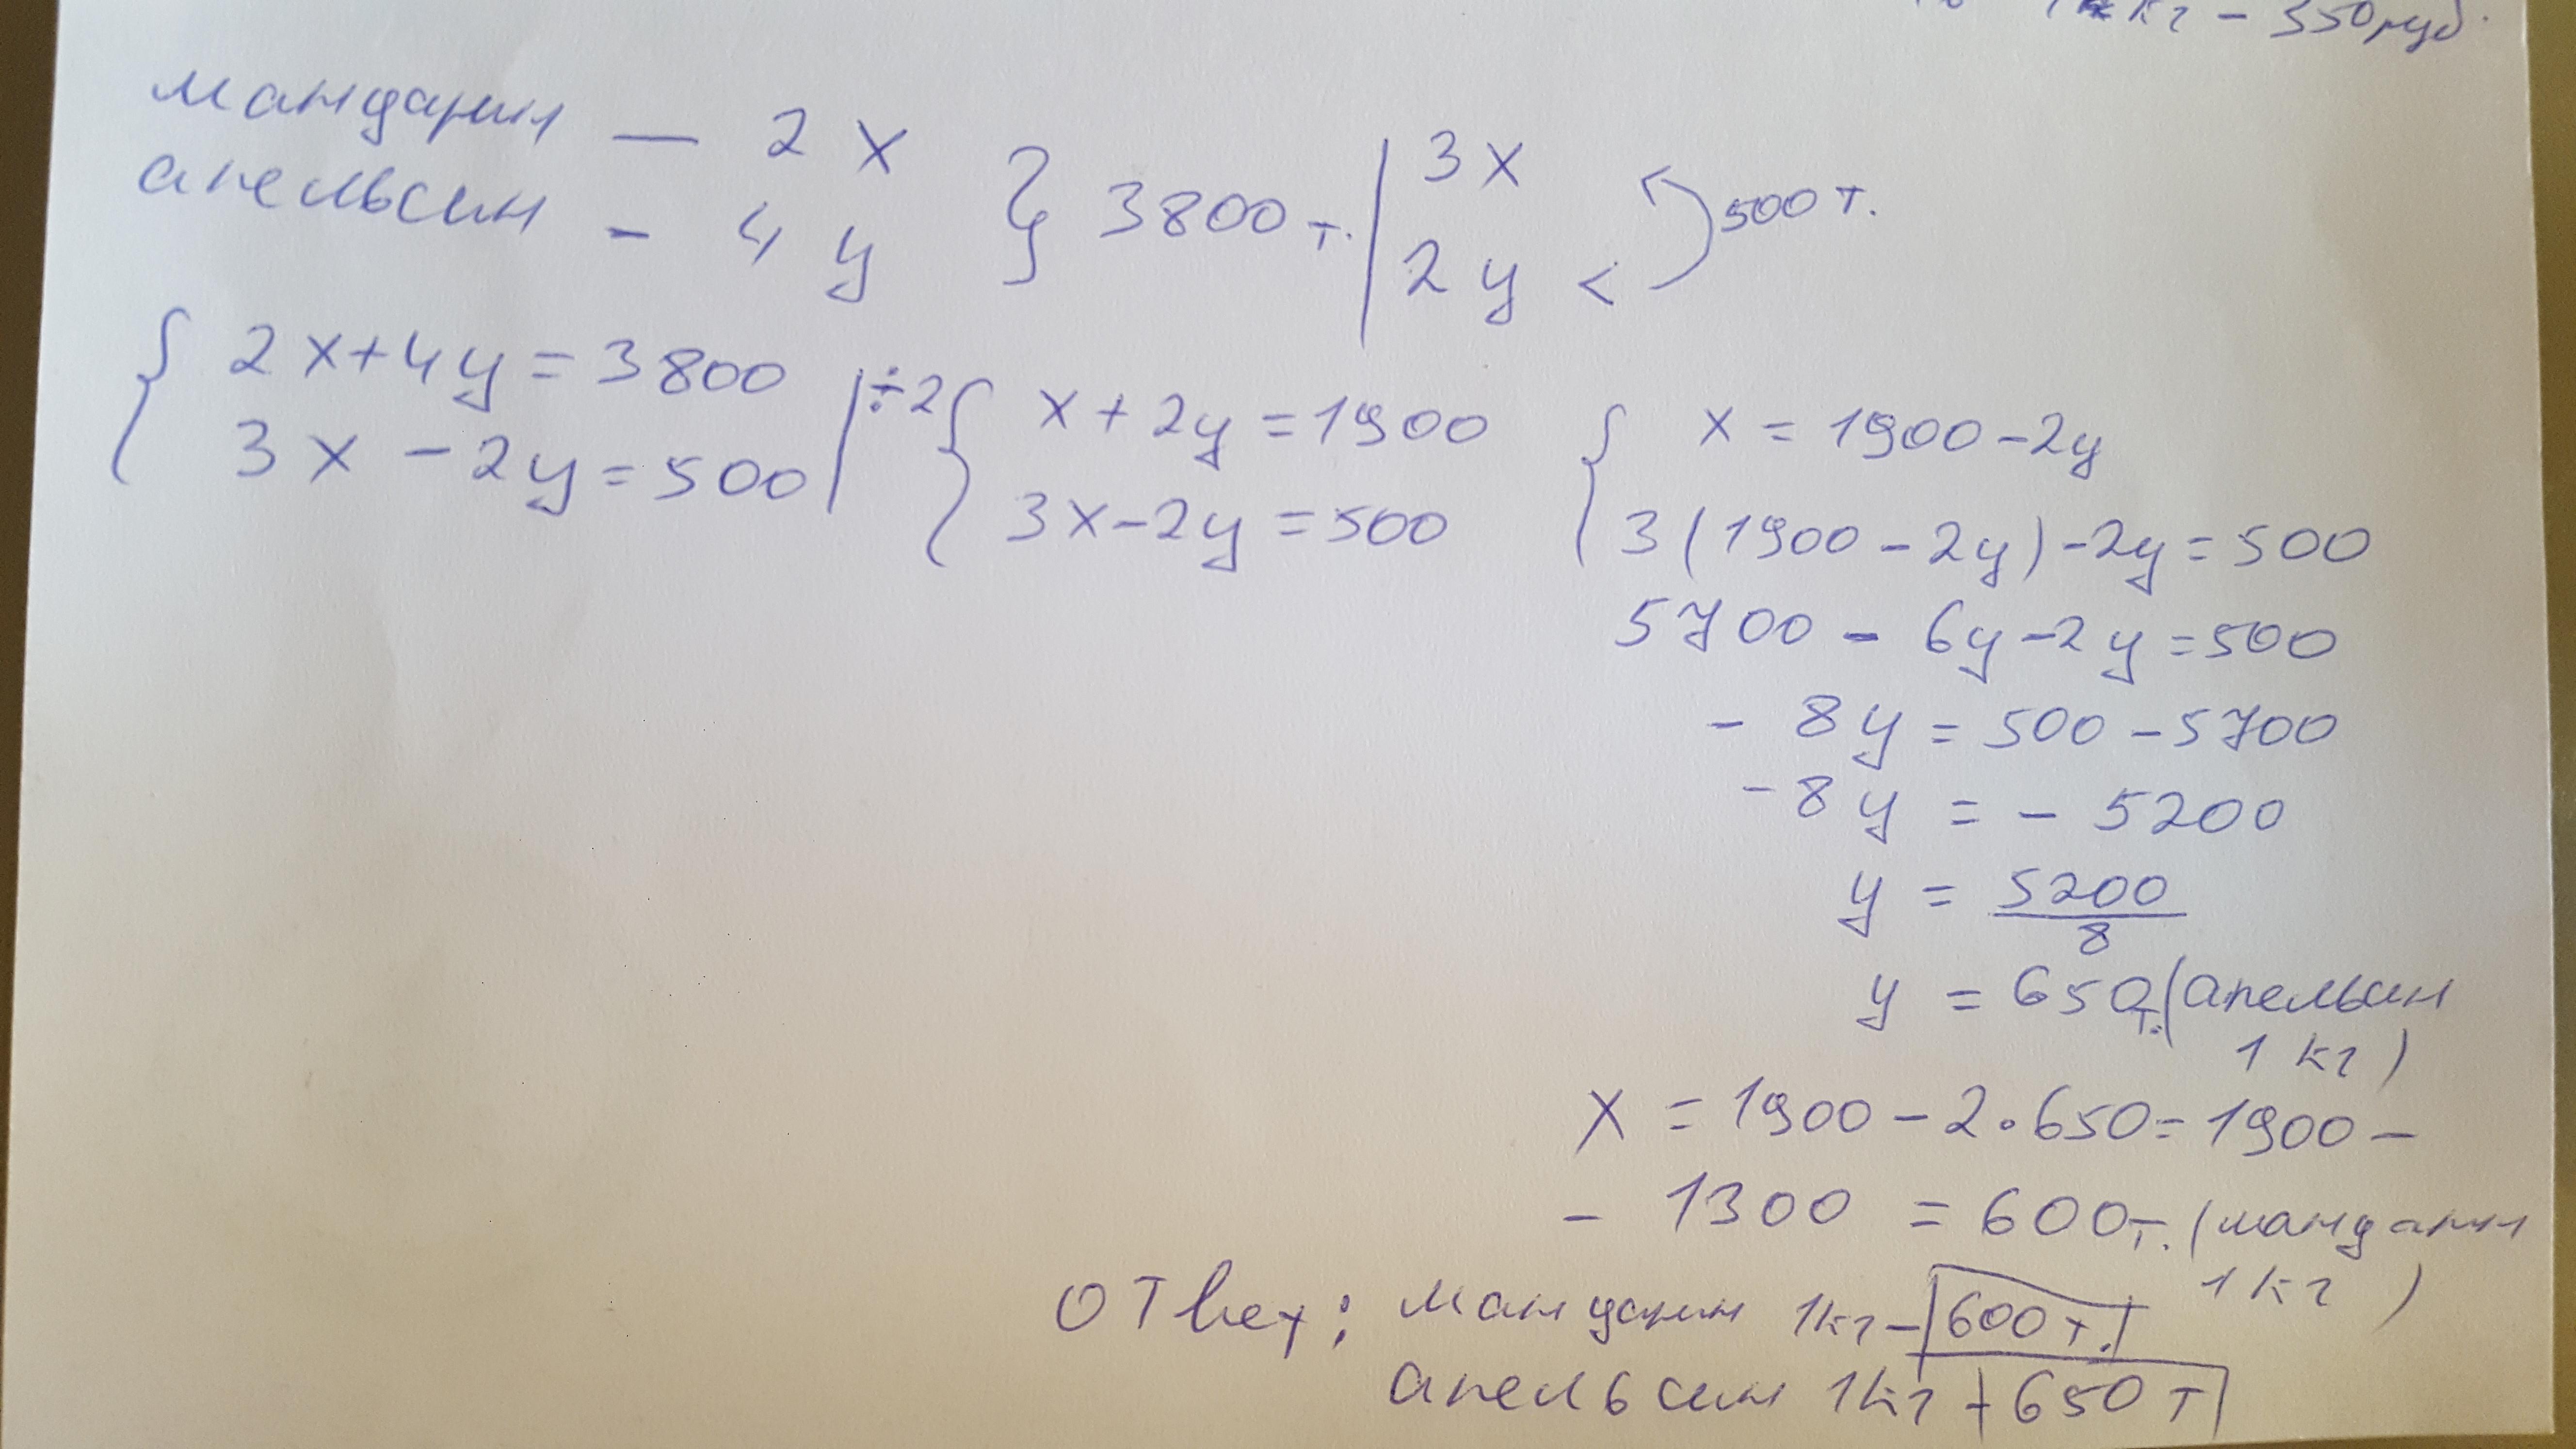 1 кг - 350 руб.
мандарин — 2 x } 3800 т. | 3x
апельсин - 4 y | 2y < 500 т.
{ 2x+4y=3800 | ÷2 { x+2y=1900 { x=1900-2y
3x-2y=500 3x-2y=500 3(1900-2y)-2y=500
5700-6y-2y=500
-8y=500-5700
-8y=-5200
y=5200/8
y=650т.(апельсин
1 кг)
x=1900-2•650=1900-
-1300=600т.(мандарин
1 кг)
Ответ: мандарин 1кг-600т.
апельсин 1кг-650т